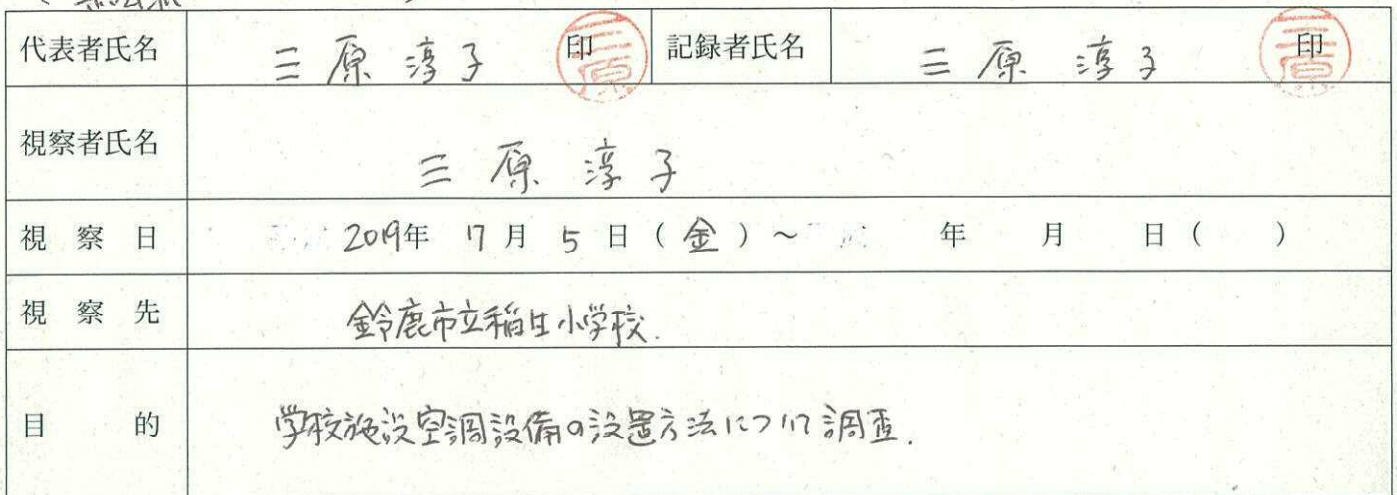 代表者氏名 三原淳子 印 記録者氏名 三原淳子 印
視察者氏名 三原淳子
視察日 2019年 7月 5日(金)～ 年 月 日( )
視察先 鈴鹿市立稲生小学校.
目的 学校施設空調設備の設置方法について調査.